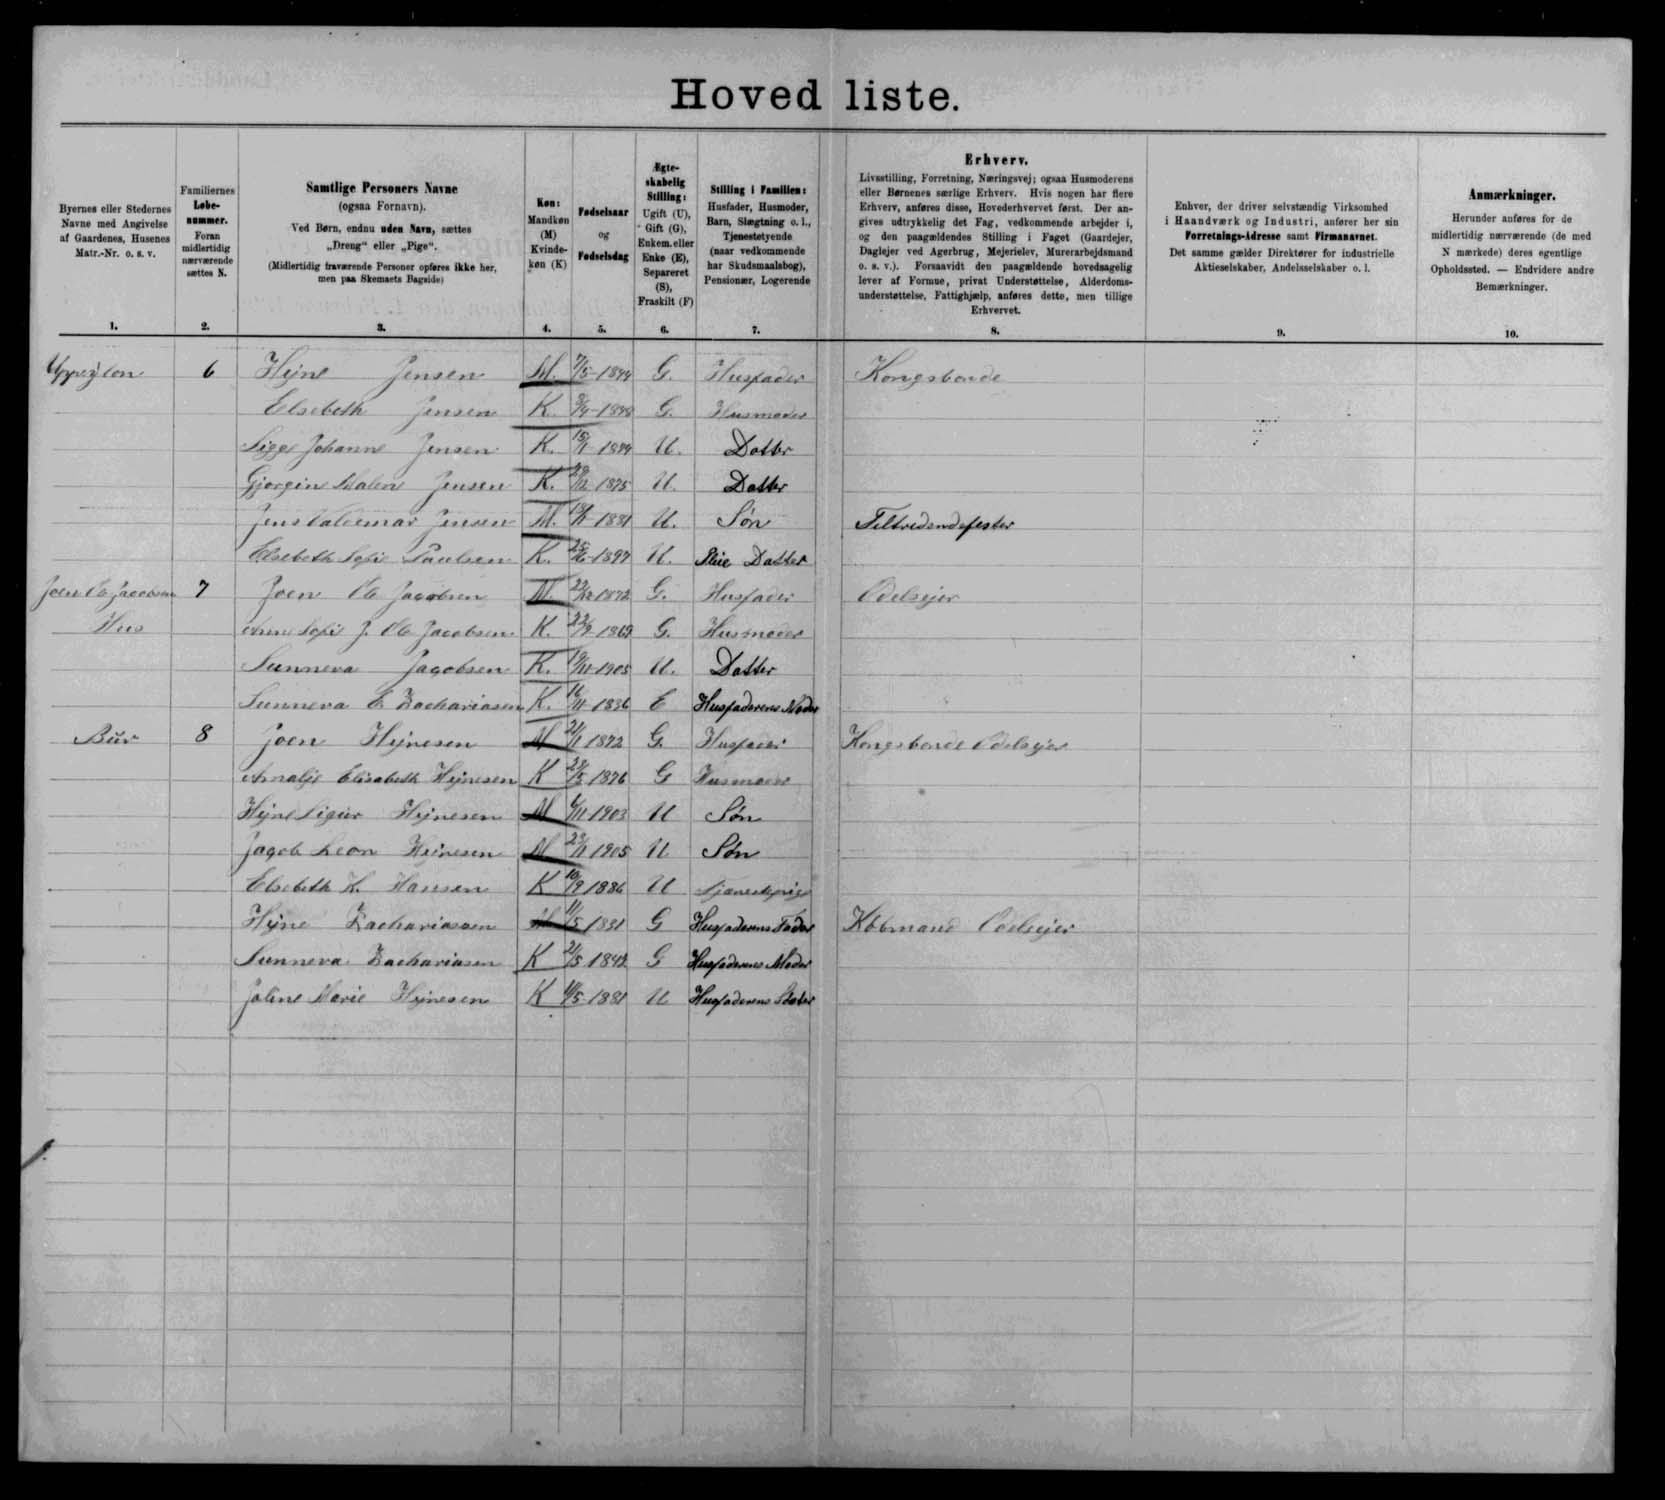 Hovedliste.
Byernes eller Stedernes
Navne med Angivelse
af Gaardenes, Husenes
Matr.-Nr. o. s. v.
1.
Familiernes
Løbe-
nummer.
Foran
midlertidig
nærværende
sættes N.
2.
Samtlige Personers Navne
(ogsaa Fornavn).
Ved Børn, endnu uden Navn, sættes
„Dreng" eller „Pige".
(Midlertidig fraværende Personer opføres ikke her,
men paa Skemaets Bagside)
3.
Køn:
Mandkøn
(M)
Kvinde-
køn (K)
4.
Fødselsaar
og
Fødselsdag
5.
Ægte-
skabelig
Stilling:
Ugift (U),
Gift (G),
Enkem. eller
Enke (E),
Separeret
(S),
Fraskilt (F)
6.
Stilling i Familien:
Husfader, Husmoder,
Barn, Slægtning o. l.,
Tjenestetyende
(naar vedkommende
har Skudsmaalsbog),
Pensionær, Logerende
7.
Erhverv.
Livsstilling, Forretning, Næringsvej; ogsaa Husmoderens
eller Børnenes særlige Erhverv. Hvis nogen har flere
Erhverv, anføres disse, Hovederhvervet først. Der an-
gives udtrykkelig det Fag, vedkommende arbejder i,
og den paagældendes Stilling i Faget (Gaardejer,
Daglejer ved Agerbrug, Mejerielev, Murerarbejdsmand
o. s. v.). Forsaavidt den paagældende hovedsagelig
lever af Formue, privat Understøttelse, Alderdoms-
understøttelse, Fattighjælp, anføres dette, men tillige
Erhvervet.
8.
Enhver, der driver selvstændig Virksomhed
i Haandværk og Industri, anfører her sin
Forretnings-Adresse samt Firmanavnet.
Det samme gælder Direktører for industrielle
Aktieselskaber, Andelsselskaber o. l.
9.
Anmærkninger.
Herunder anføres for de
midlertidig nærværende (de med
N mærkede) deres egentlige
Opholdssted. — Endvidere andre
Bemærkninger.
10.
6 Hejne Jensen M. G. Husfader Kongsbonde
Elsebeth Jensen K. G. Husmoder
Sigge Johanne Jensen K. U. Datter
Gjorgine Malene Jensen K. 1875 U. Datter
Jens Valdemar Jensen M. 1881 U. Søn
Elsebeth Sofie Poulsen K. 1897 U. Pleie Datter
Joen Ol Jacobsen 7 Joen Ol Jacobsen M. 1872 G. Husfader Odelsejer
Hus Anne Sofie J. Ol Jacobsen K. 1869 G. Husmoder
Sunneva Jagobsen K. 19/11-1905 U. Datter
Sunneva E Zachariasen K. 16/11-1836 E Husfaderens Moder
Búr 8 Joen Hejnesen M 21/1 1872 G. Husfader Kongsbonde Odelsejer
Amalje Elisabeth Hejnesen K 23/5 1876 G Husmoder
Hejne Sigur Hejnesen M 6/11 1903 U Søn
Jagob Leon Hejnesen M 1905 U Søn
Elsebeth K. Hansen K 10/9 1886 U Tjenestepige
Hejne Zachariasen M 11/5 1831 G Husfaderens Fader Købmand Odelsejer
Sunneva Zachariasen K 21/5 1842 G Husfaderens Moder
Joline Marie Hejnesen K 1881 U Husfaderens Søster